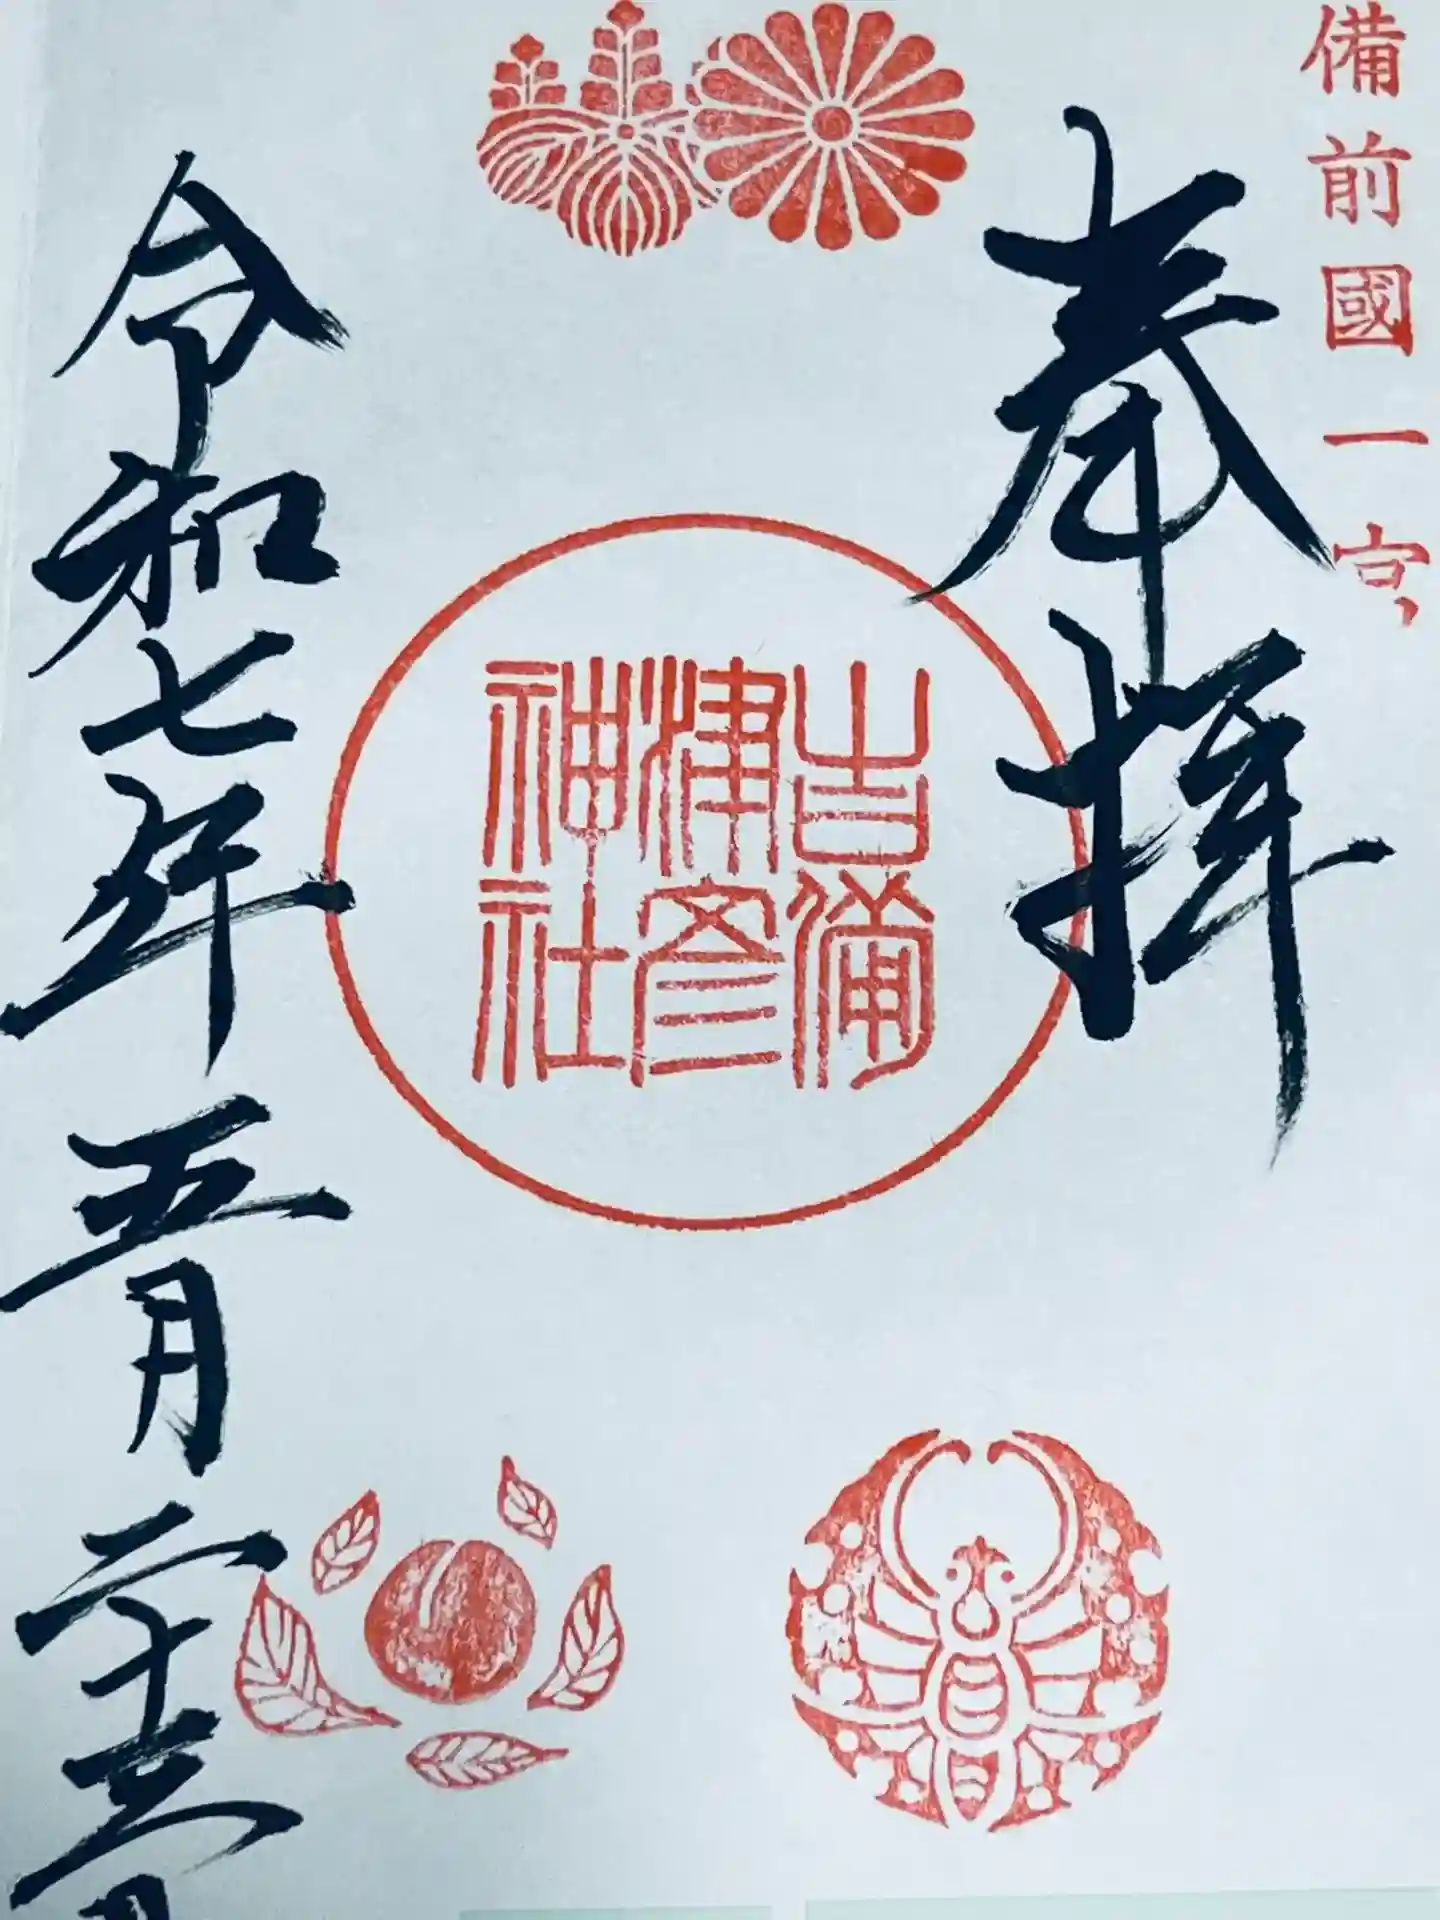 備前國一宮
奉拝
吉備
津彦
神社
令和七年五月二十五日